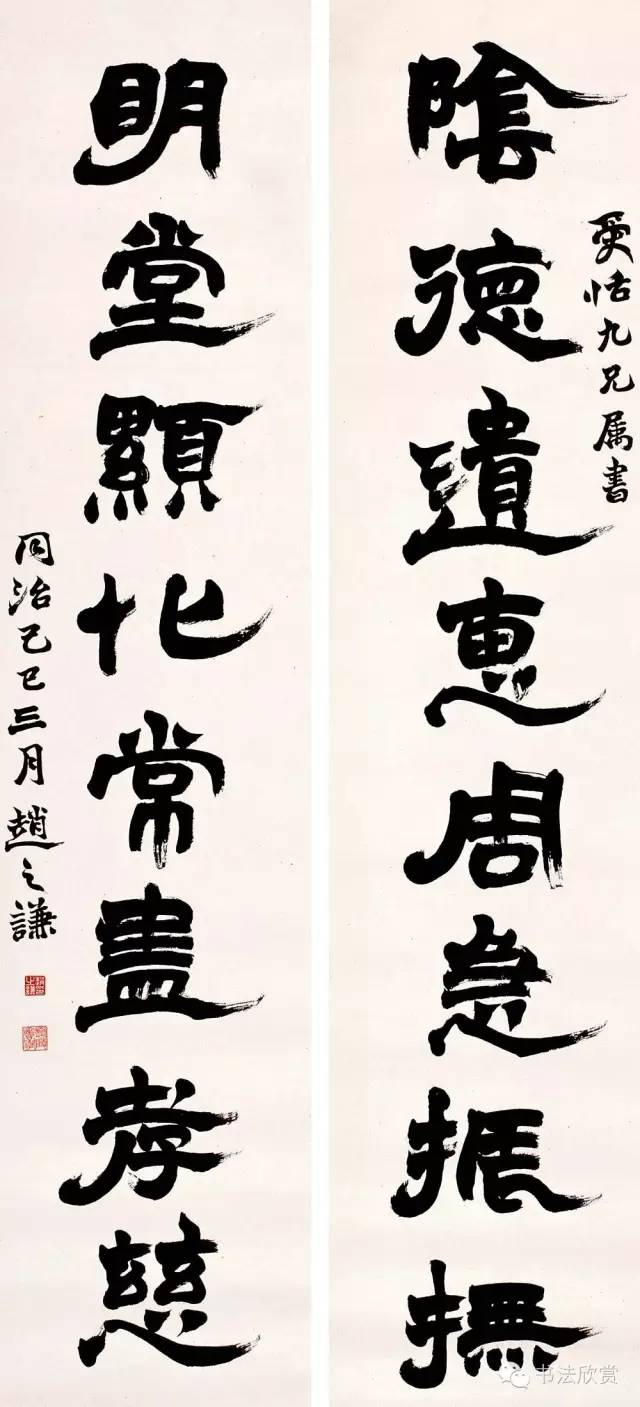 陰德遺惠周急振撫
恬九兄属書
明堂顯化常盡孝慈
同治己巳三月趙之謙
书法欣赏